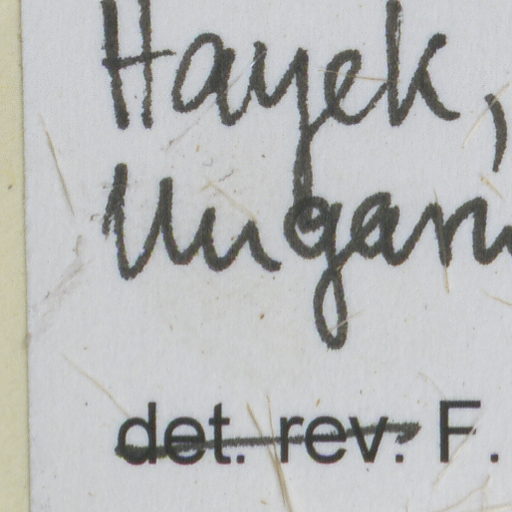 Hayek,
Ungarn
det. rev. F.